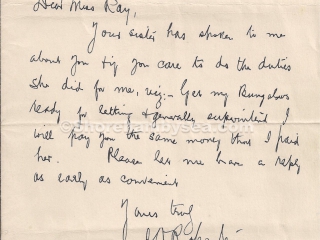 Dear Miss Ray,
Your sister has spoken to me
about you & if you care to do the duties
she did for me, viz:- Get my Bungalows
ready for letting & generally superintend I
will pay you the same money that I paid
her. Please let me have a reply
as early as convenient
Yours truly